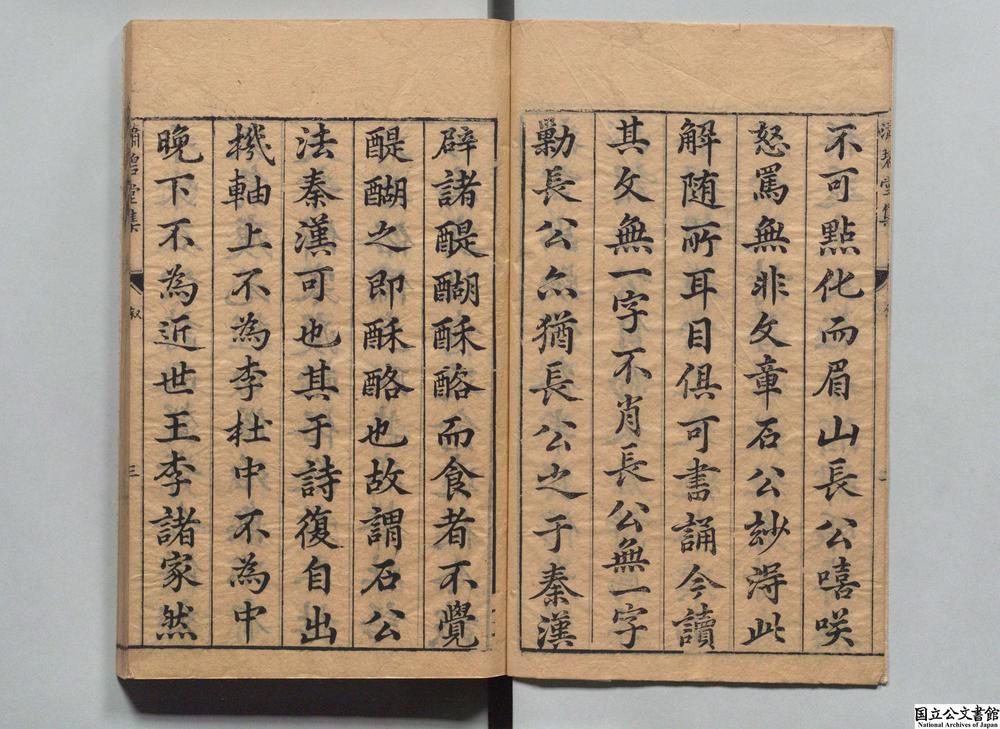 不可點化而眉山長公嘻咲
怒罵無非文章石公玅淂此
解随所耳目俱可書誦今讀
其文無一字不肖長公無一字
勦長公亦猶長公之于秦漢
瀟碧堂集
辟諸醍醐酥酪而食者不覺
醍醐之即酥酪也故謂石公
法秦漢可也其于詩復自出
機軸上不為李杜中不為中
晚下不為近世王李諸家然
瀟碧堂集
叙
三
国立公文書館
National Archives of Japan